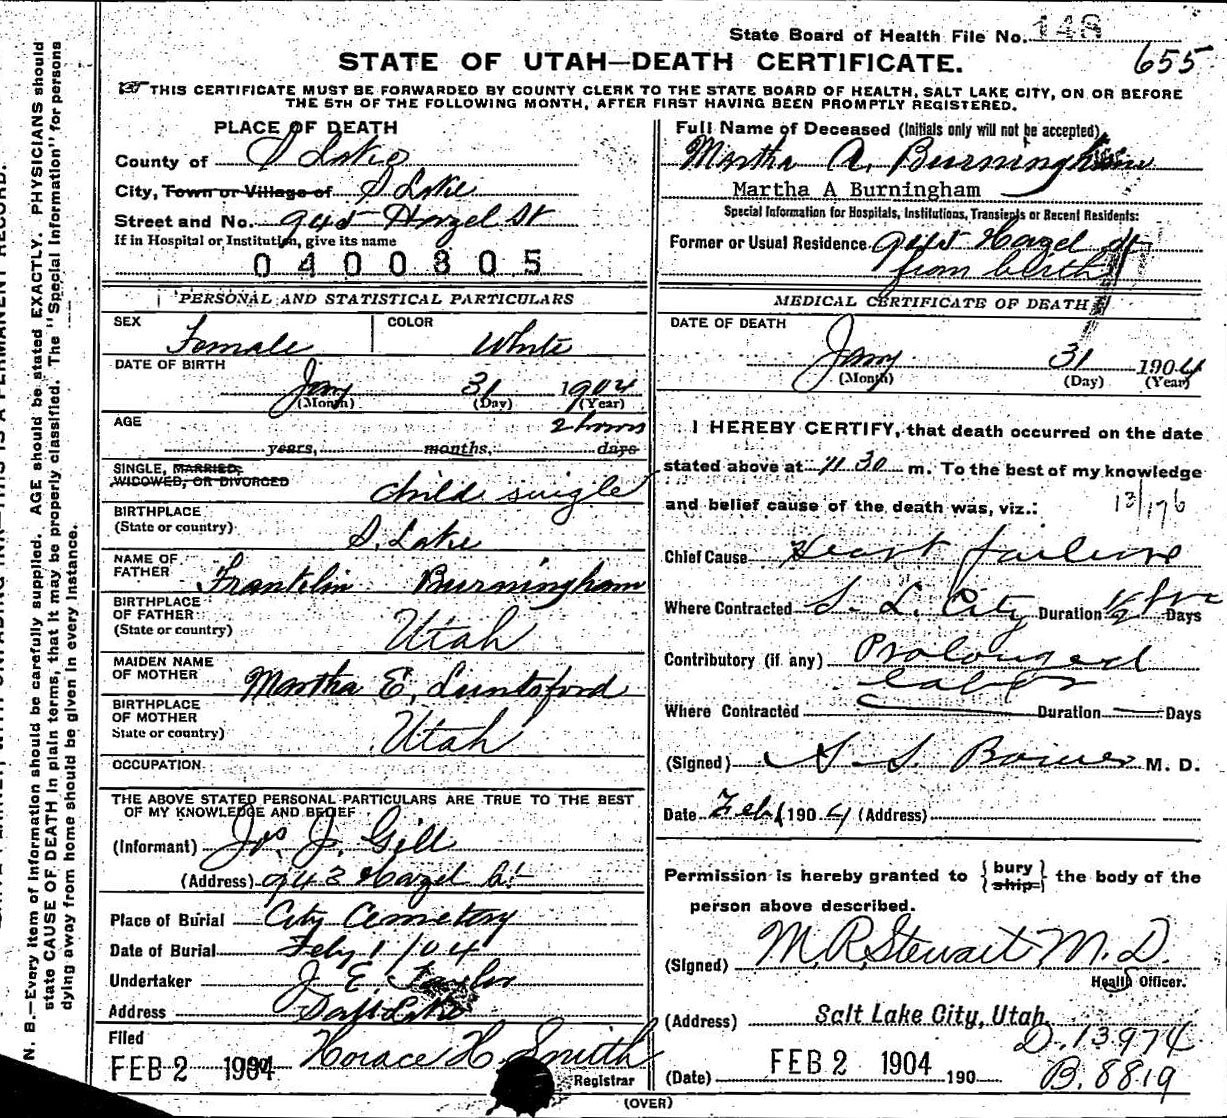 State Board of Health File No. 148
655
STATE OF UTAH—DEATH CERTIFICATE.
THIS CERTIFICATE MUST BE FORWARDED BY COUNTY CLERK TO THE STATE BOARD OF HEALTH, SALT LAKE CITY, ON OR BEFORE
THE 5TH OF THE FOLLOWING MONTH, AFTER FIRST HAVING BEEN PROMPTLY REGISTERED.
PLACE OF DEATH
County of S Lake
City, Town or Village of S Lake
Street and No. 945 Hazel St
If in Hospital or Institution, give its name
0400805
PERSONAL AND STATISTICAL PARTICULARS
SEX Female COLOR White
DATE OF BIRTH
Jany 31 1904
(Month) (Day) (Year)
AGE 2 hours
years, months, days
SINGLE, MARRIED,
WIDOWED, OR DIVORCED child single
BIRTHPLACE
(State or country) S. Lake
NAME OF
FATHER Franklin Burningham
BIRTHPLACE
OF FATHER
(State or country) Utah
MAIDEN NAME
OF MOTHER Martha E. Luntsford
BIRTHPLACE
OF MOTHER
State or country) Utah
OCCUPATION
THE ABOVE STATED PERSONAL PARTICULARS ARE TRUE TO THE BEST
OF MY KNOWLEDGE AND BELIEF
(Informant) Js. J. Gill
(Address) 943 Hazel St
Place of Burial City Cemetery
Date of Burial Feby 1/04
Undertaker J. E. Taylor
Address Salt Lake
Filed
FEB 2 1904 Horace H. Smith
Registrar
Full Name of Deceased (Initials only will not be accepted)
Martha A. Burningham
Martha A Burningham
Special Information for Hospitals, Institutions, Transients or Recent Residents:
Former or Usual Residence 945 Hazel St
from birth
MEDICAL CERTIFICATE OF DEATH
DATE OF DEATH
Jany 31 1904
(Month) (Day) (Year)
I HEREBY CERTIFY, that death occurred on the date
stated above at 11 30 m. To the best of my knowledge
and belief cause of the death was, viz.:
13/176
Chief Cause Heart failure
Where Contracted S. L. City Duration 1/2 hrs Days
Contributory (if any) Prolonged
labor
Where Contracted Duration Days
(Signed) M. D.
Date Feb 1 1904 (Address)
Permission is hereby granted to {bury
ship} the body of the
person above described.
(Signed) M. R. Stewart M. D.
Health Officer.
(Address) Salt Lake City, Utah
D. 13974
(Date) FEB 2 1904 190
B. 8819
(OVER)
N. B.—Every item of information should be carefully supplied. AGE should be stated EXACTLY. PHYSICIANS should
state CAUSE OF DEATH in plain terms, that it may be properly classified. The "Special Information" for persons
dying away from home should be given in every instance.